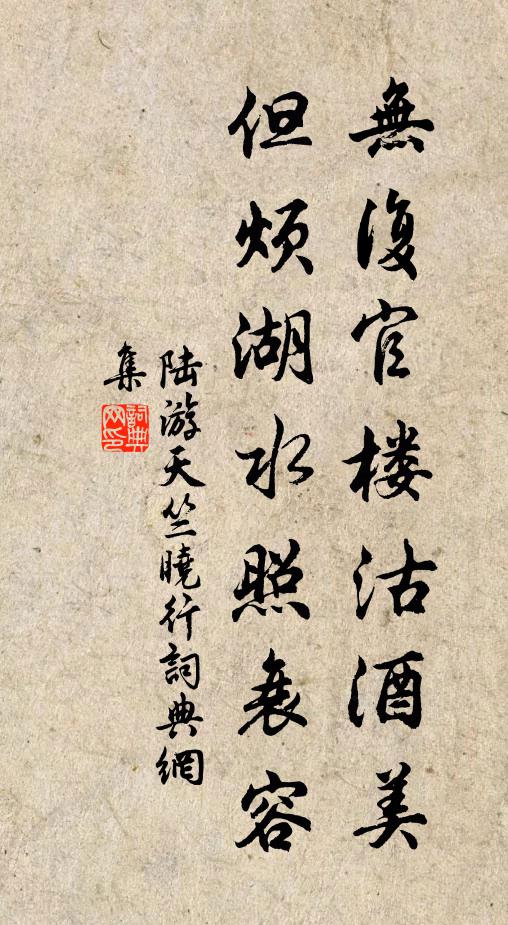 無復官楼沽酒美
但煩湖水照衰容
陆游天竺曉行詞典網
集
詞典網印